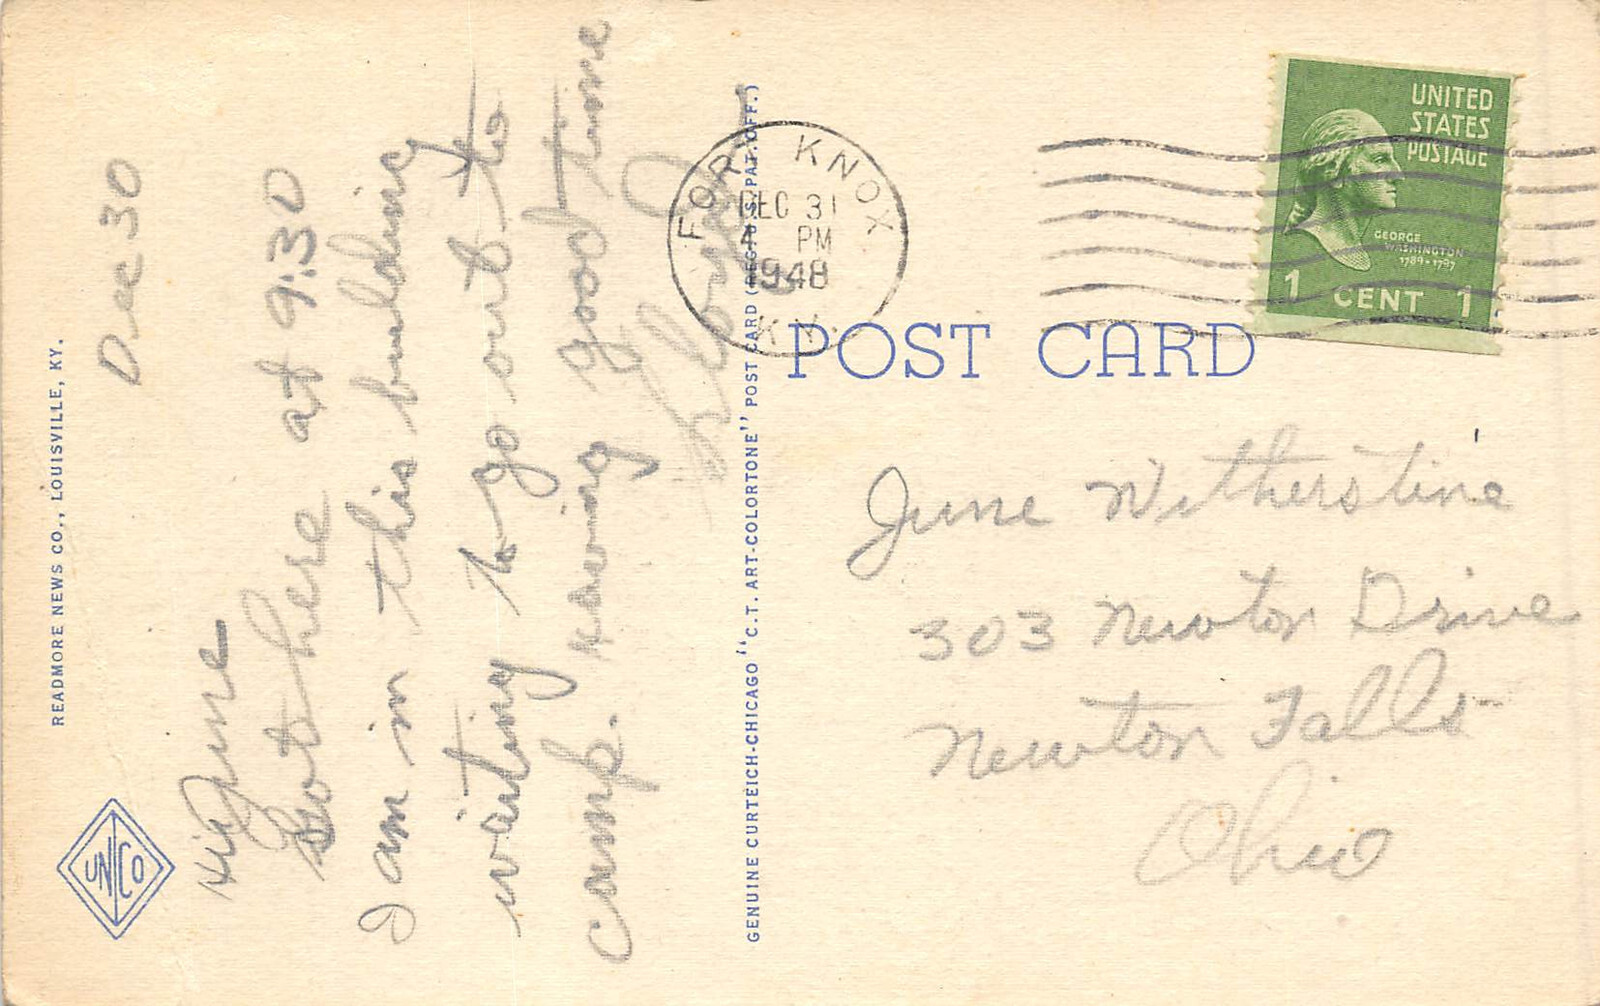 Dec 30
Hi June
Got here at 9:30
I am in this building
waiting to go out to
camp. Having good time
READMORE NEWS CO., LOUISVILLE, KY.
UNCO
GENUINE CURTEICH-CHICAGO "C.T. ART-COLORTONE" POST CARD (REG. U.S. PAT. OFF.)
FORT KNOX
DEC 31
4 PM
1948
KY.
UNITED
STATES
POSTAGE
GEORGE
WASHINGTON
1789-1797
1 CENT 1
POST CARD
June Witherstine
303 Newton Drive
Newton Falls
Ohio